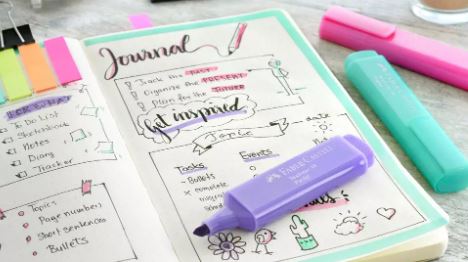 Journal
Track the PAST
Organize the PRESENT
Plan for the FUTURE
Get inspired
To Do List
Sketchbook
Notes
Diary
Tracker
Topics
Page numbers
Short sentences
Bullets
Topic
date
Tasks
- Bullets
× complete
migra
sched
Events
FABER-CASTELL